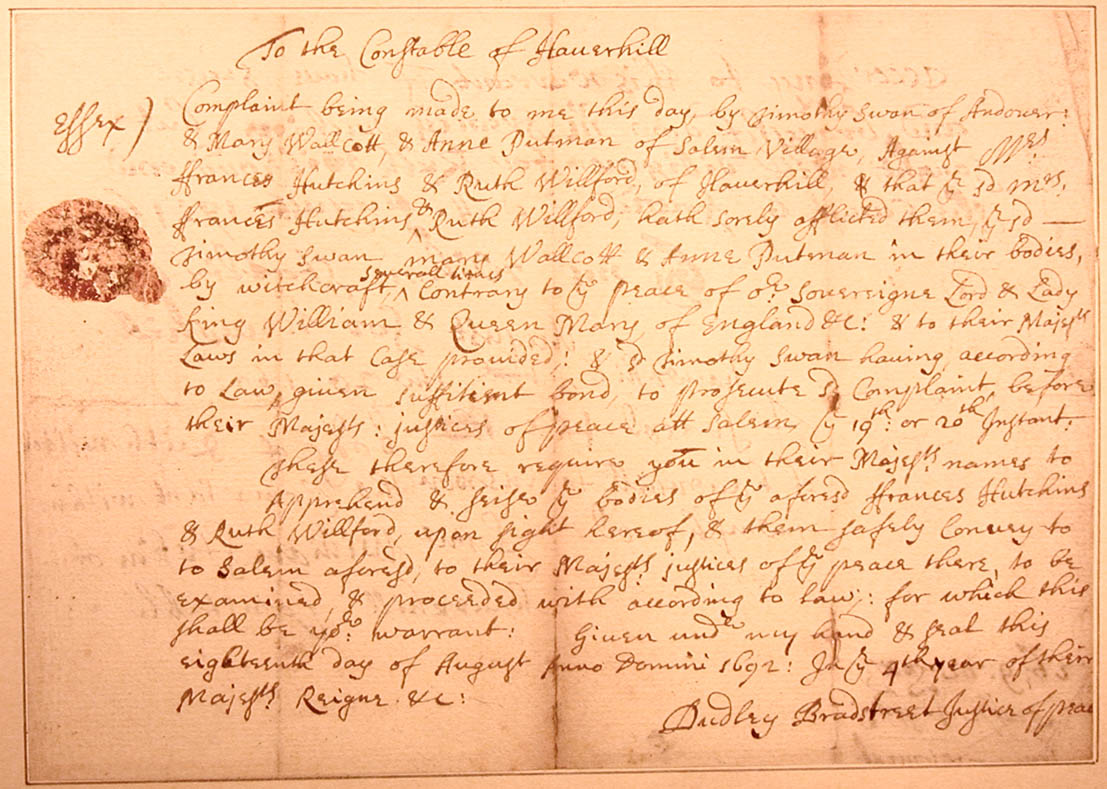 To the Constable of Haverhill
Essex) Complaint being made to me this day, by Timothy Swan of Andover:
& Mary Wallcott, & Anne Putman of Salem Village, Against Mrs
ffrances Hutchins & Ruth Willford, of Haverhill, & that ye sd mrs,
ffrances Hutchins & Ruth Willford, hath sorely afflicted them, ye sd —
Timothy Swan mary Wallcott & Anne Putman in their bodies,
by witchcraft, severall times Contrary to ye peace of or Sovereigne Lord & Lady
King William & Queen Mary of England &c: & to their Majests
Laws in that Case provided,: & sd Timothy Swan having according
to Law, given suffitient bond, to prosecute sd Complaint, before
their Majests: justices of peace att Salem ye 19th: or 20th Instant:
These therefore require you in their Majests names to
Apprehend & seise ye bodies of ye aforesd ffrances Hutchins
& Ruth Willford, upon sight hereof, & them safely Convey to
to Salem aforesd, to their Majests justices of ye peace there, to be
examined, & proceeded with according to Law,: for which this
shall be yor warrant: Given undr my hand & seal this
eighteenth day of August Anno Domini 1692: In ye 4th year of their
Majests Reigne &c:
Dudley Bradstreet Justice of peac